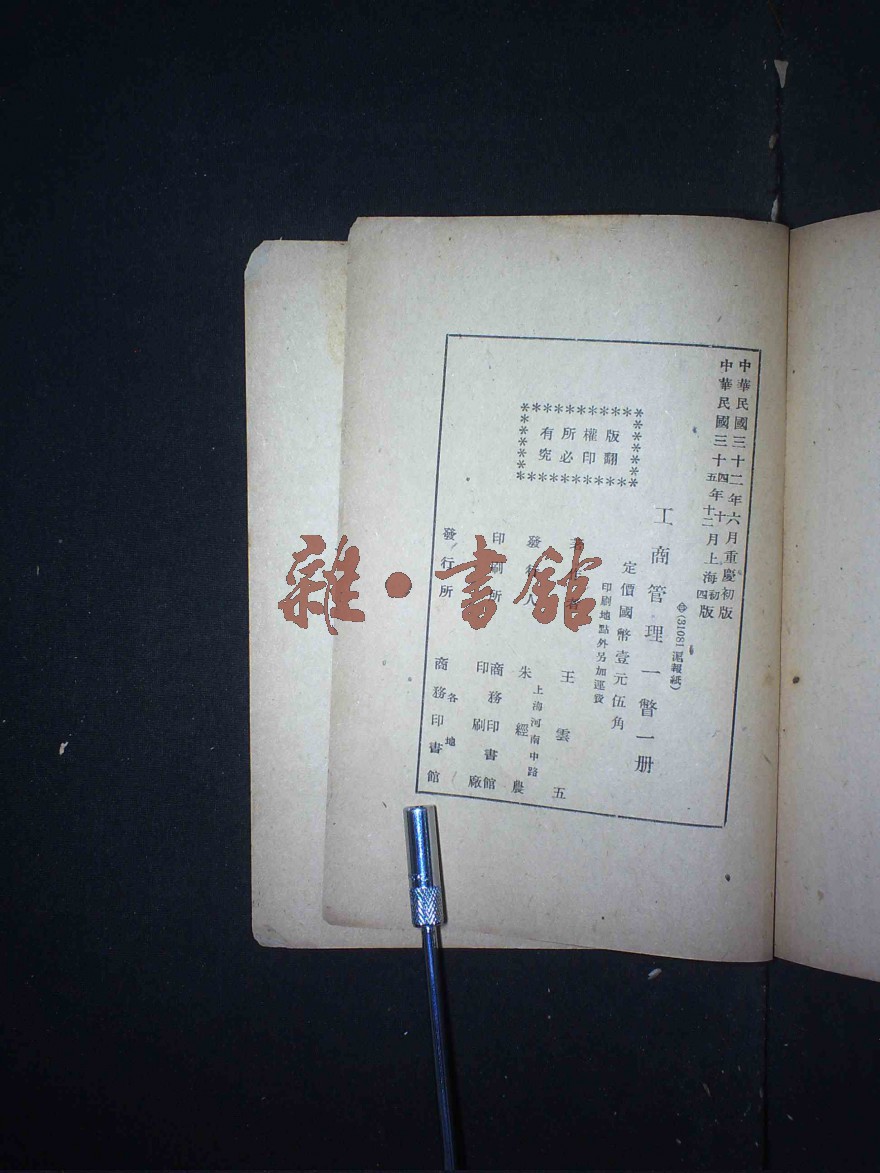 中華民國三十二年六月重慶初版
中華民國三十四年十月上海初版
中華民國三十五年十二月上海四版
⊕(31081 滬報紙)
工商管理一瞥一册
定價國幣壹元伍角
印刷地點外另加運費
版權所有
翻印必究
著作者 王雲五
上海河南中路
發行人 朱經農
印刷所 商務印書館
印刷廠
各地
發行所 商務印書館
雜·書館